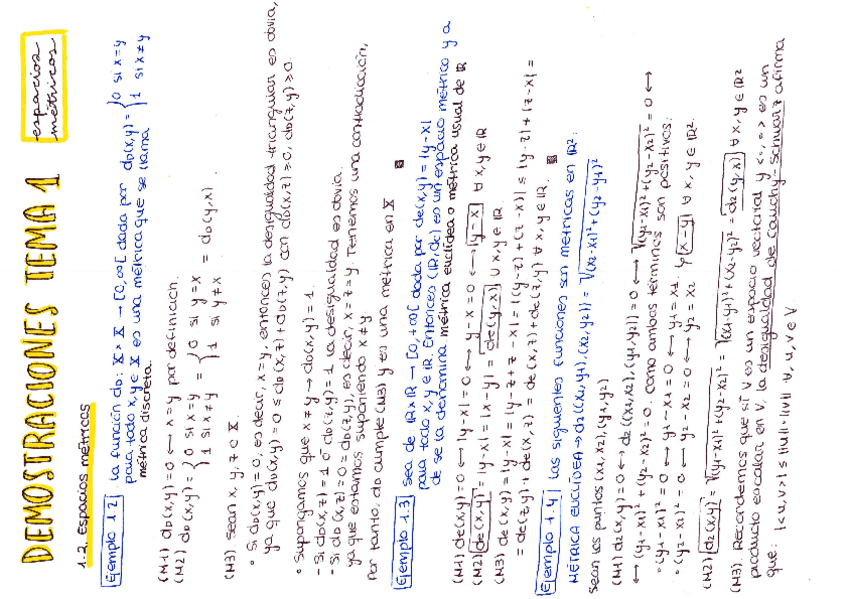 DEMOSTRACIONES TEMA 1
espacios métricos
1.2. Espacios métricos
Ejemplo 1.2 La función d_D: X × X → [0,∞[ dada por d_D(x,y) = { 0 si x=y
1 si x≠y
para todo x,y ∈ X es una métrica que se llama
métrica discreta.
(M1) d_D(x,y)=0 ⟷ x=y por definición.
(M2) d_D(x,y) = { 0 si x=y = { 0 si y=x = d_D(y,x)
1 si x≠y 1 si y≠x
(M3) Sean x, y, z ∈ X.
• Si d_D(x,y)=0, es decir, x=y, entonces la desigualdad triangular es obvia,
ya que d_D(x,y)=0 ≤ d_D(x,z)+d_D(z,y) con d_D(x,z)≥0, d_D(z,y)≥0.
• Supongamos que x≠y → d_D(x,y)=1.
- Si d_D(x,z)=1 ó d_D(z,y)=1 la desigualdad es obvia.
- Si d_D(x,z)=0=d_D(z,y), es decir, x=z=y. Tenemos una contradicción,
ya que estamos suponiendo x≠y
Por tanto, d_D cumple (M3) y es una métrica en X
Ejemplo 1.3 Sea d_e: ℝ×ℝ → [0,+∞[ dada por d_e(x,y)=|y-x|
para todo x,y ∈ ℝ. Entonces (ℝ,d_e) es un espacio métrico y a
d_e se la denomina métrica euclídea o métrica usual de ℝ
(M1) d_e(x,y)=0 ⟷ |y-x|=0 ⟷ y-x=0 ⟷ |y-x| ∀ x,y ∈ ℝ
(M2) d_e(x,y) = |y-x| = |x-y| = d_e(y,x) ∪ x,y ∈ ℝ.
(M3) d_e(x,y) = |y-x| = |y-z+z-x| = |(y-z)+(z-x)| ≤ |y-z|+|z-x| =
= d_e(z,y)+d_e(x,z) = d_e(x,z)+d_e(z,y) ∀ x,y ∈ ℝ.
Ejemplo 1.4 Las siguientes funciones son métricas en ℝ²:
MÉTRICA EUCLÍDEA → d₂((x₁,y₁),(x₂,y₂)) = √(x₂-x₁)²+(y₂-y₁)²
Sean los puntos (x₁,x₂),(y₁,y₂)
(M1) d₂(x,y)=0 ⟷ d₂((x₁,x₂),(y₁,y₂))=0 ⟷ √(y₁-x₁)²+(y₂-x₂)² =0 ⟷
⟷ (y₁-x₁)²+(y₂-x₂)²=0, como ambos términos son positivos:
• (y₁-x₁)²=0 ⟷ y₁-x₁=0 ⟷ y₁=x₁
• (y₂-x₂)²=0 ⟷ y₂-x₂=0 ⟷ y₂=x₂ } x=y ∀ x,y ∈ ℝ².
(M2) d₂(x,y) = √(y₁-x₁)²+(y₂-x₂)² = √(x₁-y₁)²+(x₂-y₂)² = d₂(y,x) ∀ x,y ∈ ℝ²
(M3). Recordemos que si V es un espacio vectorial y <·,·> es un
producto escalar en V, la desigualdad de Cauchy-Schwarz afirma
que: |<u,v>| ≤ ||u||·||v|| ∀, u,v ∈ V